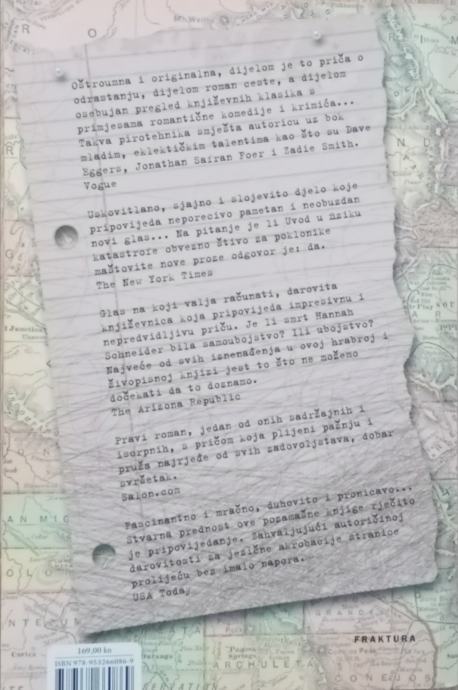 Oštroumna i originalna, dijelom je to priča o
odrastanju, dijelom roman ceste, a dijelom
osebujan pregled književnih klasika s
primjesama romantične komedije i krimića...
Takva pirotehnika smješta autoricu uz bok
mladim, eklektičkim talentima kao što su Dave
Eggers, Jonathan Safran Foer i Zadie Smith.
Vogue
Uskovitlano, sjajno i slojevito djelo koje
pripovijeda neporecivo pametan i neobuzdan
novi glas... Na pitanje je li Uvod u fiziku
katastrofe obvezno štivo za poklonike
maštovite nove proze odgovor je: da.
The New York Times
Glas na koji valja računati, darovita
književnica koja pripovijeda impresivnu i
nepredvidljivu priču. Je li smrt Hannah
Schneider bila samoubojstvo? Ili ubojstvo?
Najveće od svih iznenađenja u ovoj hrabroj i
živopisnoj knjizi jest to što ne možemo
dočekati da to doznamo.
The Arizona Republic
Pravi roman, jedan od onih sadržajnih i
iscrpnih, s pričom koja plijeni pažnju i
pruža najrjeđe od svih zadovoljstava, dobar
svršetak.
Salon.com
Fascinantno i mračno, duhovito i pronicavo...
Stvarna prednost ove pozamašne knjige rječito
je pripovijedanje. Zahvaljujući autoričinoj
darovitosti za jezične akrobacije stranice
prolijeću bez imalo napora.
USA Today
FRAKTURA
169,00 kn
ISBN 978-953266086-9
ARCHULETA
CONEJOS